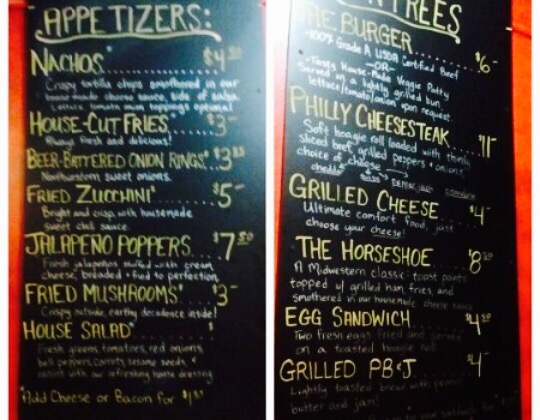 APPETIZERS:
NACHOS $4.50
Crispy tortilla chips smothered in our
house-made cheese sauce, side of salsa
Lettuce tomato onion toppings optional
HOUSE-CUT FRIES* $3-
Always fresh and delicious!
BEER-BATTERED ONION RINGS* $3
Northwestern sweet onions.
FRIED ZUCCHINI* $5-
Bright and crisp, with housemade
sweet chili sauce.
JALAPENO POPPERS $7.50
Fresh jalapenos stuffed with cream
cheese, breaded + fried to perfection
FRIED MUSHROOMS* $3-
Crispy outside, earthy decadence inside!
HOUSE SALAD* $
Fresh greens, tomatoes, red onions,
bell peppers, carrots, sesame seeds +
raisins with our refreshing house dressing
*Add Cheese or Bacon for $1
ENTREES
THE BURGER $6-
-100% Grade A USDA Certified Beef
-OR-
House-Made Veggie Patty
Served on a lightly grilled bun
lettuce/tomato/onion upon request
PHILLY CHEESESTEAK $11-
Soft hoagie roll loaded with thinly
sliced beef, grilled peppers + onions
choice of cheese
cheddar swiss pepper jack
GRILLED CHEESE $4-
Ultimate comfort food, just
choose your cheese!
THE HORSESHOE $8.50
A Midwestern classic: toast points
topped w/ grilled ham, fries, and
smothered in our housemade cheese sauce
EGG SANDWICH $4.50
Two fresh eggs fried and served
on a toasted hoagie roll
GRILLED PB&J $4-
Lightly toasted bread with peanut
butter and jam!